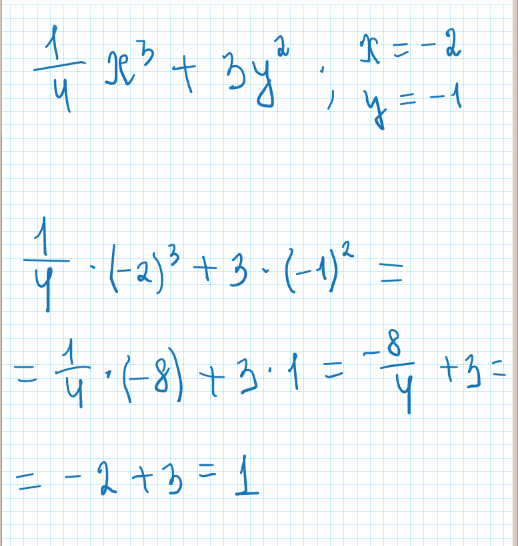 1/4 x³ + 3y² ; x = -2
y = -1
1/4 · (-2)³ + 3 · (-1)² =
= 1/4 · (-8) + 3 · 1 = -8/4 + 3 =
= -2 + 3 = 1